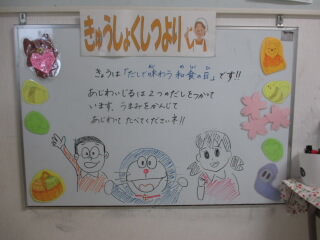 きゅうしょくしつより
きょうは「だしで味わう和食の日」です!!
あじわいじるは2つのだしをつかって
います。うまみをかんじて
あじわって たべてくださいネ!!